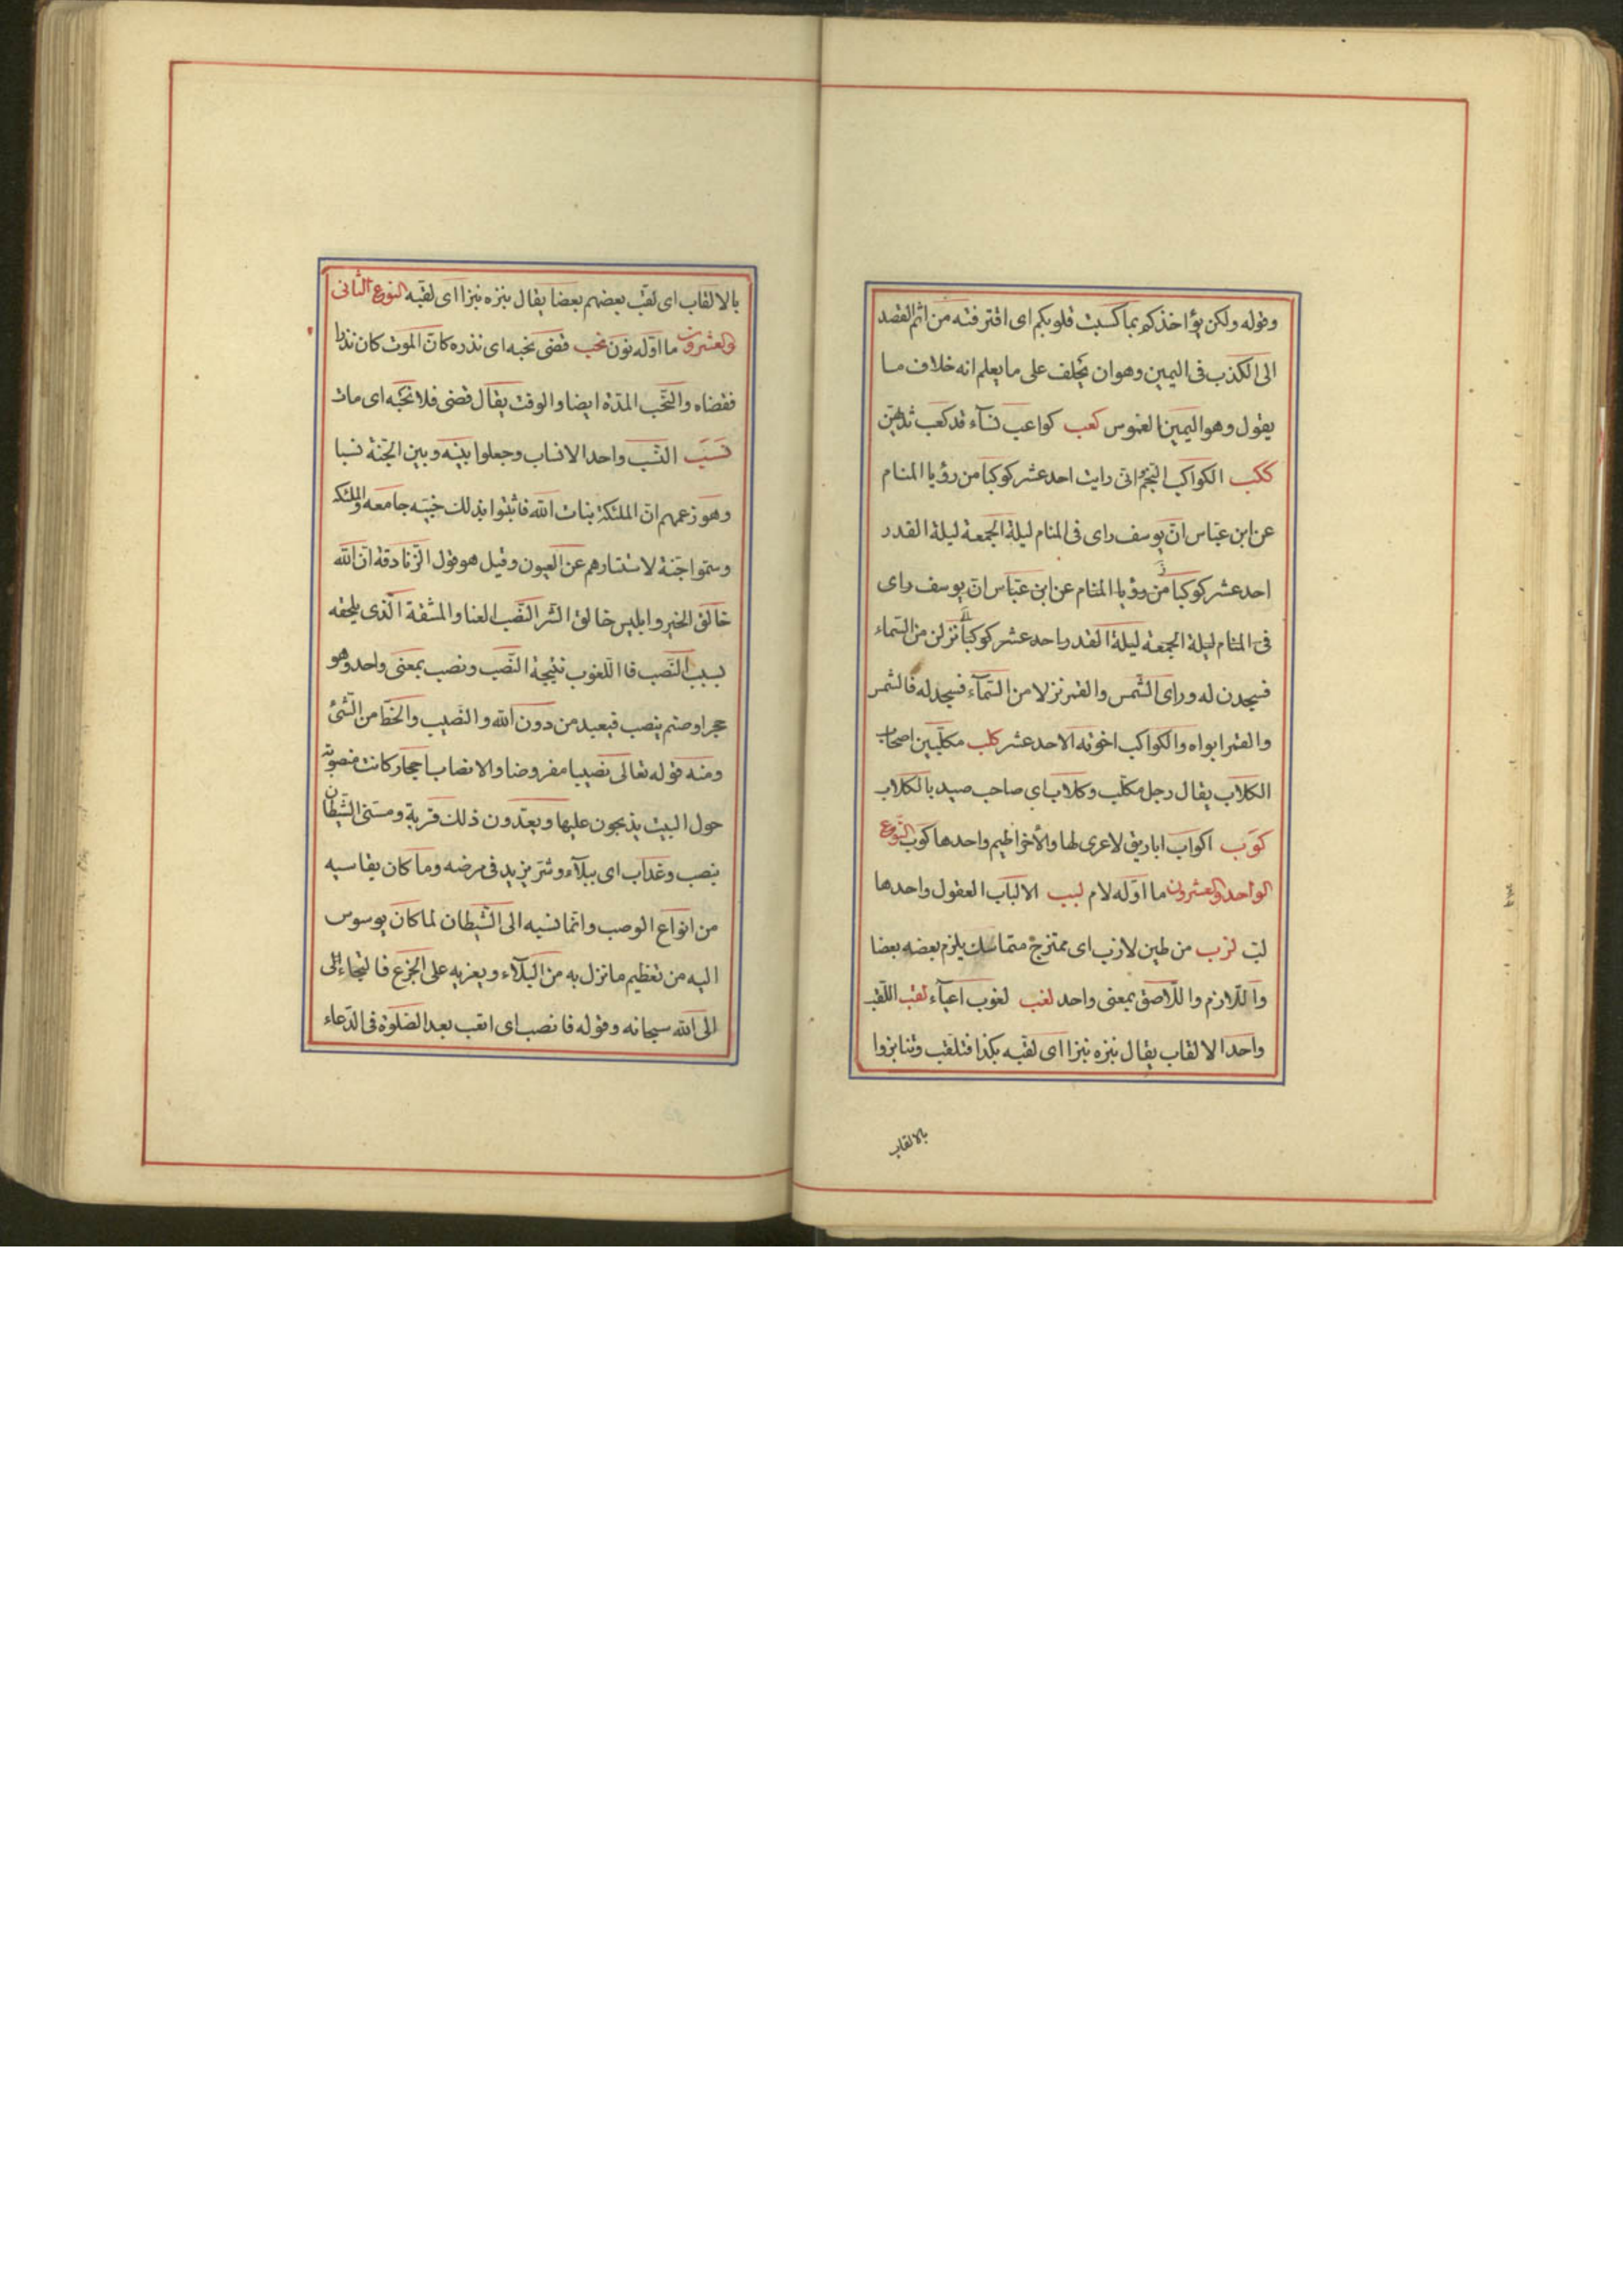 وقوله ولكن يؤاخذكم بما كسبت قلوبكم اى اقترفته من اثم القصد
الى الكذب فى اليمين وهو ان يحلف على ما يعلم انه خلاف ما
يقول وهو اليمين الغموس كعب كواعب نسآء قد كعب ثديهن
ككب الكواكب النجم انى رايت احد عشر كوكبا من رؤيا المنام
عن ابن عباس ان يوسف راى فى المنام ليلة الجمعة ليلة القدر
احد عشر كوكبا من رؤيا المنام عن ابن عباس ان يوسف راى
فى المنام ليلة الجمعة ليلة القدر احد عشر كوكبا نزلن من السماء
فسجدن له وراى الشمس والقمر نزلا من السمآء فسجد له فالشمس
والقمر ابواه والكواكب اخوته الاحد عشر كلب مكلبين اصحاب
الكلاب يقال رجل مكلب وكلاب اى صاحب صيد بالكلاب
كوب اكواب اباريق لا عرى لها ولا خراطيم واحدها كوب النوع
الواحد والعشرون ما اوّله لام لبب الالباب العقول واحدها
لبّ لزب من طين لازب اى ممتزج متماسك يلزم بعضه بعضا
واللازم واللاصق بمعنى واحد لغب لغوب اعيآء لقب اللقب
واحد الالقاب يقال نبزه نبزا اى لقبه بكذا فتلقب وتنابزوا
بالالقاب
بالالقاب اى لقب بعضهم بعضا يقال نبزه نبزا اى لقبه النوع الثانى
والعشرون ما اوّله نون نحب قضى نحبه اى نذره كان الموت كان نذرا
فقضاه والنحب المدة ايضا والوقت يقال قضى فلا نحبه اى مات
نسب النسب واحد الانساب وجعلوا بينه وبين الجنة نسبا
وهو زعمهم ان الملئكة بنات الله فاثبتوا بذلك جامعه والملئكه
وسمّوا جنة لاستتارهم عن العيون وقيل هو قول الزنادقة ان الله
خالق الخير وابليس خالق الشر النصب العنا والمشقة الذى يلحقه
بسبب النصب فا اللغوب نتيجة النصب ونصب بمعنى واحد وهو
حجر او صنم ينصب فيعبد من دون الله والنصيب والحظ من الشئ
ومنه قوله تعالى نصيبا مفروضا والانصاب احجار كانت منصوبة
حول البيت يذبحون عليها ويعدّون ذلك قربة ومسنى الشيطان
بنصب وعذاب اى ببلآء وشر يزيد فى مرضه وما كان يقاسيه
من انواع الوصب وانما نسبه الى الشيطان لما كان يوسوس
اليه من تعظيم ما نزل به من البلآء ويغريه على الجزع فالتجاء الى
الى الله سبحانه وقوله فانصب اى اتعب بعد الصلوة فى الدعاء